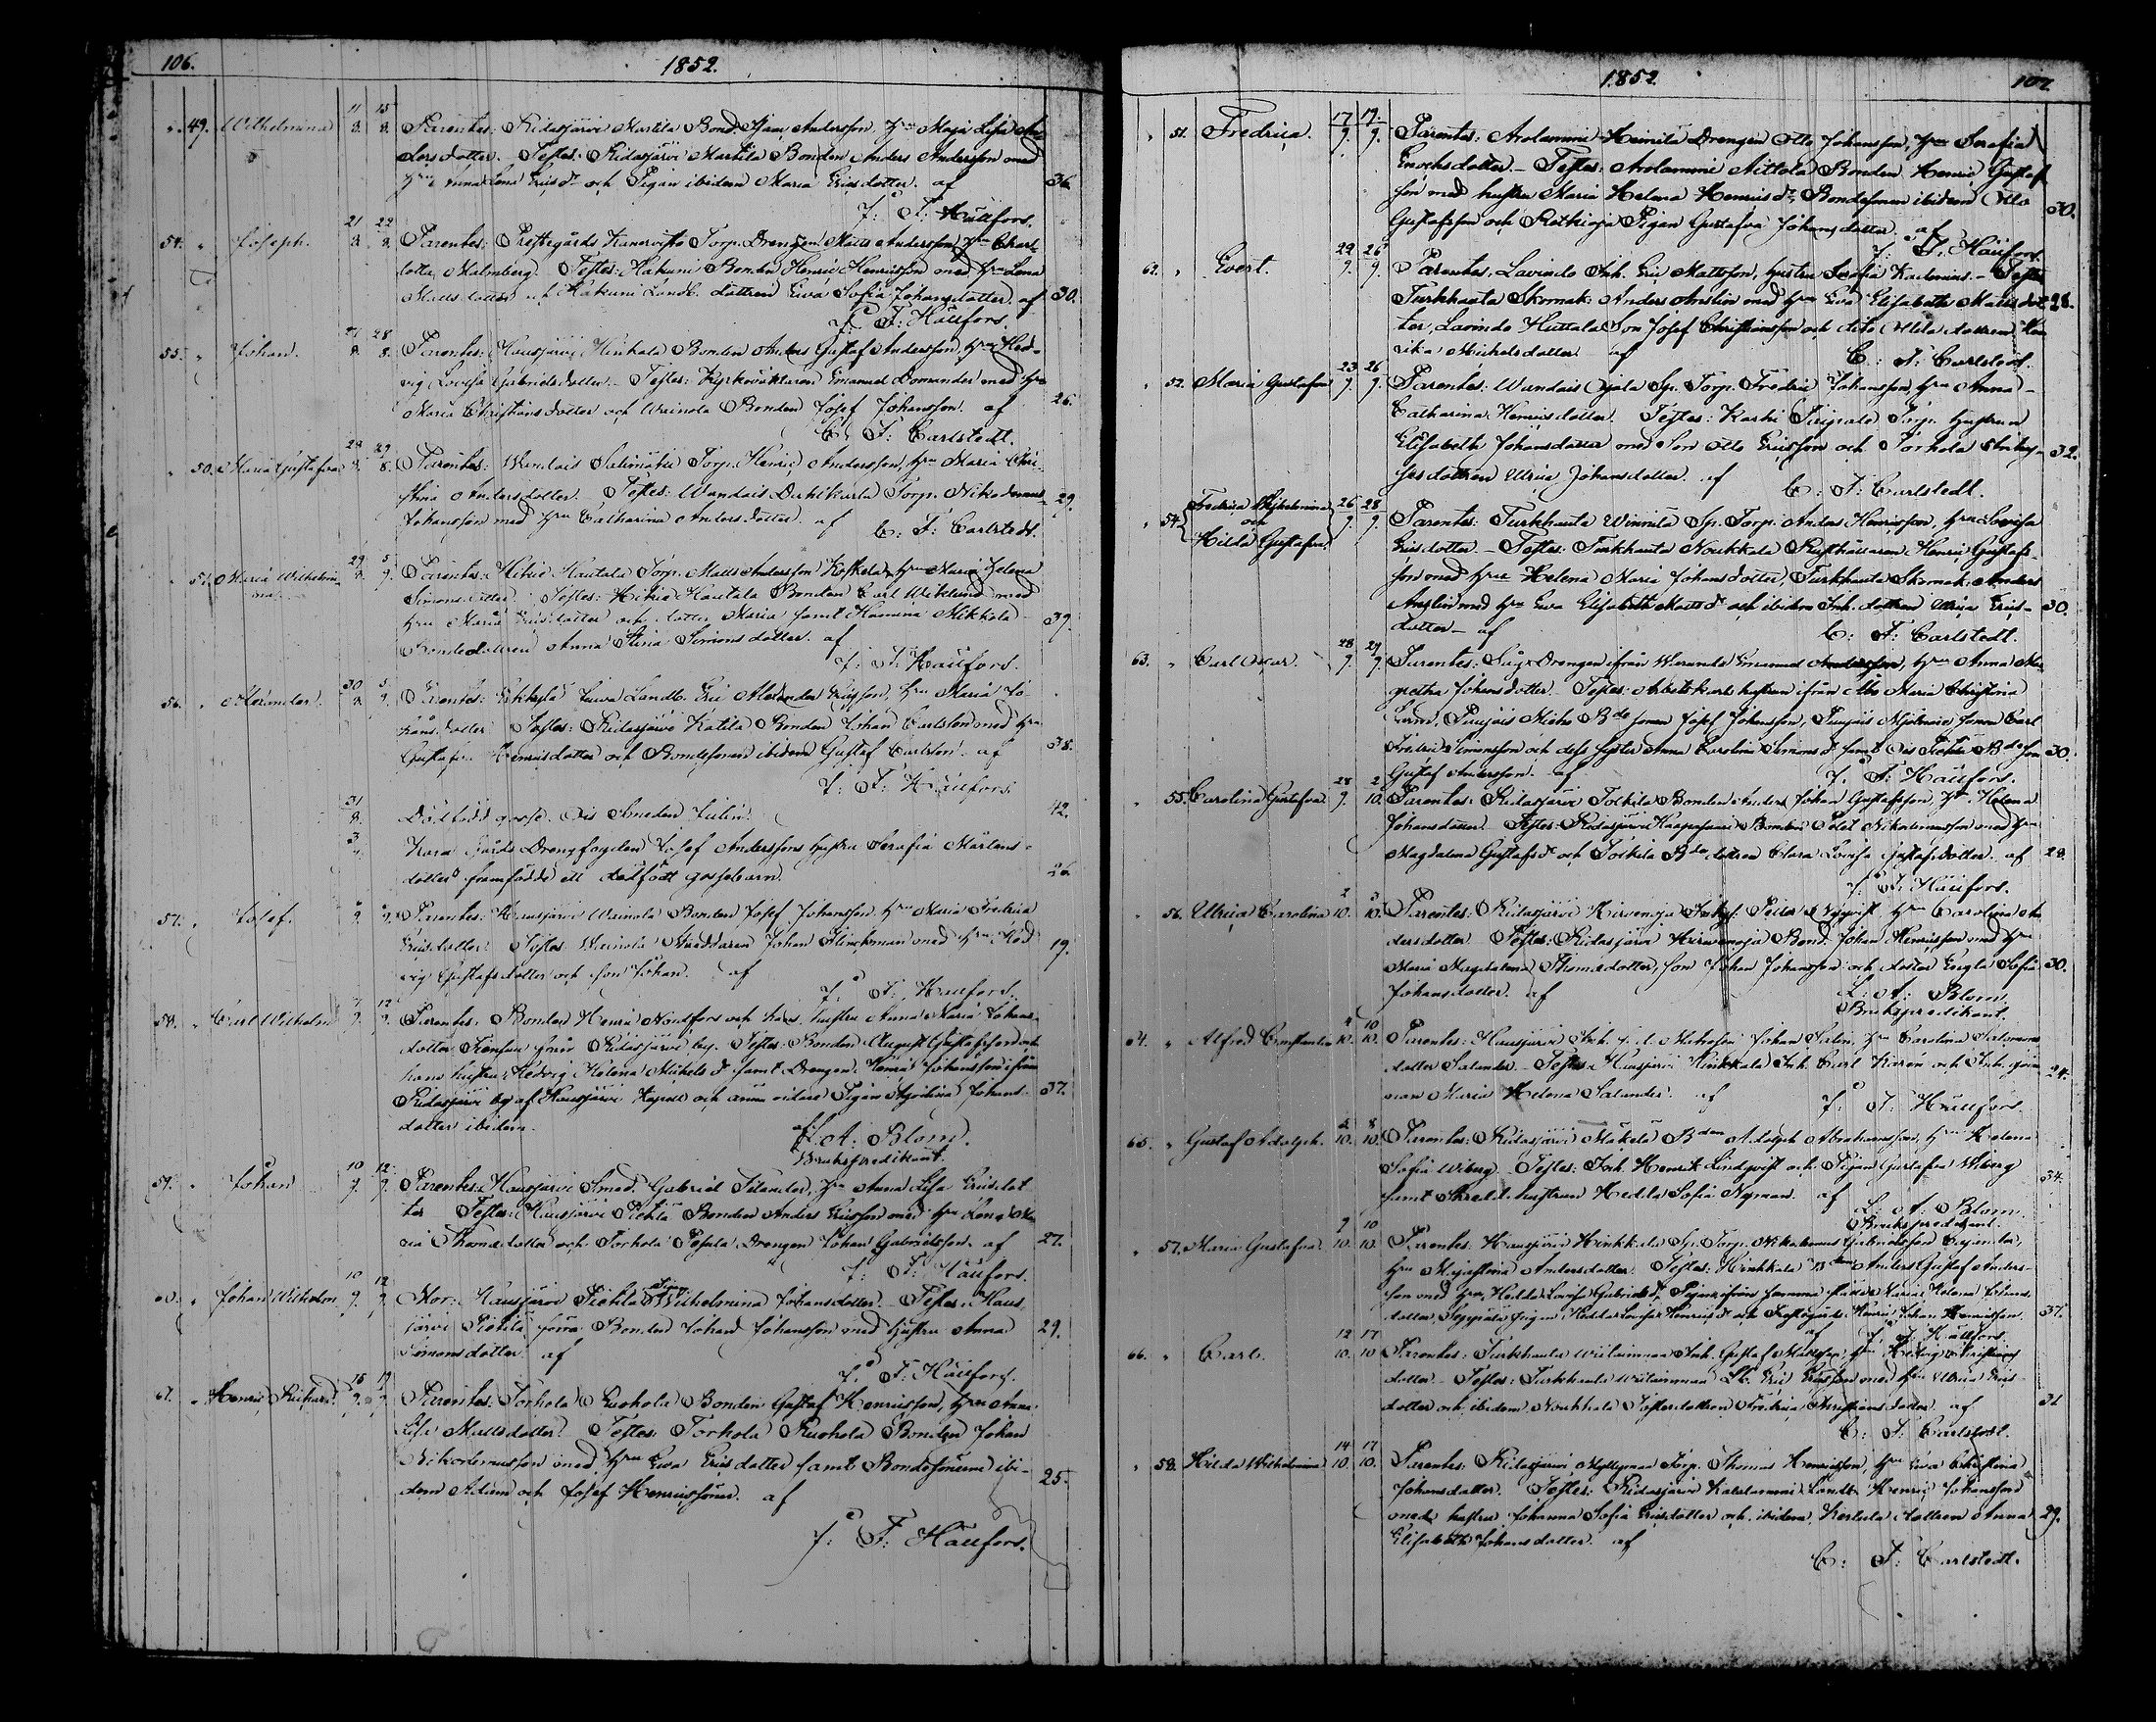 106. 1852.
49. Wilhelmina 11/8. 15/8. Parentes: Ridasjärvi Martila Bond. Anderssson, Hru Maja Lisa An-
dersdotter. Testes: Ridasjärvi Martila Bonden Anders Andersson med
Hru Anna Lena Ericsdr och Pigan ibidem Maria Ericsdotter. af 36.
J: F: Hällfors.
54. Joseph. 21/8. 22/8. Parentes: Prestegårds Torp. Drengen Matts Andersson, Hru Charl
lotta Malmberg. Testes: Hakuni Bonden Henric Henricsson med Hru Lena
Mattsdotter och Hakuni Landb. dottren Eva Sofia Johansdotter. af 30.
J: F: Hällfors.
55. Johan. 27/8. 28/8. Parentes: Hausjärvi Hinkala Bonden Anders Gustaf Andersson, Hru Hed-
vig Lovisa Gabrielsdotter. Testes: Kyrkoväktaren Emanuel Domander med Hru
Maria Christiansdotter och Wainola Bonden Josef Johansson. af 26.
C: F: Carlstedt.
50. Maria Gustafva 28/8. 29/8. Parentes: Wandais Torp. Henric Andersson, Hru Maria Chri-
stina Andersdotter. Testes: Wandais Torp. Nikodemus 29.
Johansson med Hru Catharina Andersdotter. af C: F: Carlstedt.
51. Maria Wilhelmi- 29/8. 5/9. Parentes: Hikiä Hautala Torp. Matts Andersson Hru Maria Helena
na. Simonsdotter. Testes: Hikiä Hautala Bonden Carl Wiklund med
Hru Maria Ericsdotter och dotter Maria samt Mikkola 39.
Bondedottren Anna Stina Simonsdotter. af
J: F: Hällfors.
56. Alexander. 30/8. 5/9. Parentes: Landb. Eric Alexander Ericsson, Hru Maria Jo-
hansdotter. Testes: Ridasjärvi Katila Bonden Johan Carlsson med Hru
Gustafva Henricsdotter och Bondesonen ibidem Gustaf Carlsson. af 38.
J: F: Hällfors.
31/8. Dödfödd gosse. Smeden 42.
3 Kara Gårds Drengfogden Josef Anderssons hustru Serafia Mårtens-
dotter framfödde ett dödfödt gossebarn. 26.
57. Josef. 9. 9. Parentes: Hausjärvi Wainola Bonden Josef Johansson, Hru Maria Fredrica
Ericsdotter. Testes: Wainola Skräddaren Johan med Hru Hed
vig Gustafsdotter och son Johan. af 19.
J: F: Hällfors.
58. Carl Wilhelm 7/9. 12/9. Parentes: Bonden Henric Nordfors och hans hustru Anna Maria Johans-
dotter från Ridasjärvi by. Testes: Bonden August Gustafsson och
hans hustru Hedvig Helena Michelsdr samt Drengen Henric Johansson ifrån
Ridasjärvi by af Hausjärvi Kapell och Pigan Johans- 37.
dotter ibidem. af
L: A: Blom.
Brukspredikant.
59. Johan 10/9. 12/9. Parentes: Hausjärvi Smed. Gabriel Hru Anna Lisa Ericsdot-
ter. Testes: Hausjärvi Pietilä Bonden Anders Ericsson med Hru Lena Ma-
ria Thomasdotter och Torhola Drengen Johan Gabrielsson. af 27.
J: F: Hällfors.
60. Johan Wilhelm 10/9. 12/9. Mor: Hausjärvi Pietilä Pigan Wilhelmina Johansdotter. Testes: Haus-
järvi Pietilä förra Bonden Johan Johansson med hustru Anna 29.
Simonsdotter. af
J: F: Hällfors.
61. Henric Richard. 15/9. 19/9. Parentes: Torhola Ruohola Bonden Gustaf Henricsson, Hru Anna
Lisa Mattsdotter. Testes: Torhola Ruohola Bonden Johan
Nikodemusson med Hru Eva Ericsdotter samt Bondesönerne ibi-
dem Adam och Josef Henricssöner. af 25.
J: F: Hällfors.
1852. 107.
51. Fredrica. 17/9. 19/9. Parentes: Arolammi Heimilä Drengen Otto Johansson, Hru Serafia
Enochsdotter. Testes: Arolammi Aittola Bonden Henric Gustaf
son med hustru Maria Helena Henricsdr, Bondesonen ibidem Otto
Gustafsson och Pigan Gustafva Johansdotter. af 30.
J: F: Hällfors.
62. Evert. 22/9. 26/9. Parentes: Lavinto Inh. Eric Mattsson, hustru Serafia Testes
Turkhauta Skomak. Anders Anslin med Hru Eva Elisabeth Mattsdot- 28.
ter, Lavinto Huttala Son Josef Christiansson och dito dottren Hen
rika Michelsdotter. af C: F: Carlstedt.
52. Maria Gustafva 23/9. 26/9. Parentes: Wandais Ojala Sp. Torp. Fredric Johansson, Hru Anna
Catharina Henricsdotter. Testes: Karhi Torp. hustrun
Elisabeth Johansdotter med Son Otto Ericsson och Torhola 32.
dottren Ulrica Johansdotter. af C: F: Carlstedt.
53. 54. Fredrica Wilhelmina och Hilda Gustafva. 26/9. 28/9. Parentes: Turkhauta Winnilä Sp. Torp. Anders Henricsson, Hru Lovisa
Ericsdotter. Testes: Turkhauta Noukkala Rusthållaren Henric Gustafs-
son med Hru Helena Maria Johansdotter, Turkhauta Skomak. Anders
Anslin med Hru Eva Elisabeth Mattsdr och ibidem Inh. dottren Ulrica Erics- 30.
dotter. af C: F: Carlstedt.
63. Carl Oscar. 28/9. 29/9. Parentes: Drengen ifrån Emanuel Andersson, Hru Anna Mar
gretha Johansdotter. Testes: Arbetskarls hustrun från Åbo Maria Christina
Josef Johansson, Carl
Fredric Simonsson och dess syster Anna Carolina Simonsdr samt Bdeson 30.
Gustaf Andersson. af J: F: Hällfors.
55. Carolina Gustafva. 28/9. 2/10. Parentes: Ridasjärvi Tokkila Bonden Anders Johan Gustafsson, Hru Helena
Johansdotter. Testes: Ridasjärvi Haapasaari Bonden Nikodemusson med Hru
Magdalena Gustafsdr och Tokkila Bdedottren Clara Lovisa Gustafsdotter. af 28.
J: F: Hällfors.
56. Ulrica Carolina 2/10. 3/10. Parentes: Ridasjärvi Hirvenoja Nyqvist, Hru Carolina An
dersdotter. Testes: Ridasjärvi Hirvenoja Bond. Johan Henricsson med Hru
Maria Magdalena Thomasdotter, son Johan Johansson och dotter Engla Sofia 30.
Johansdotter. af L: A: Blom.
Brukspredikant.
64. Alfred Constantin 4/10. 10/10. Parentes: Hausjärvi Inh. Johan Salin, Hru Carolina Salomons
dotter Salander. Testes: Hausjärvi Hinkkala Inh. Carl Karén och Inh. qvin
nan Maria Helena Salander. af 24.
J: F: Hällfors.
65. Gustaf Adolph. 5/10. 8/10. Parentes: Ridasjärvi Mäkelä Bden Adolph Abrahamsson, Hru Helena
Sofia Wiberg. Testes: Inh. Henrik Lindqvist och Pigan Gustafva Wiberg
samt Skredd. hustrun Hedda Sofia Nyman. af 34.
L: A: Blom.
Brukspredikant.
57. Maria Gustafva. 9/10. 10/10. Parentes: Hausjärvi Hinkkala Sp. Torp. Nikodemus Gabrielsson
Hru Majastina Andersdotter. Testes: Hinkkala Bden Anders Gustaf Anders-
son med Hru Hedda Lovisa Gabrielsdr, Pigan ifrån samma ställe Maria Helena Johans
dotter, Seppälä Pigan Hedda Lovisa Henricsdr och Prestegårds Johan Henricsson. 37.
af J: F: Hällfors.
66. Carl. 12/10. 17/10. Parentes: Turkhauta Inh. Gustaf Mattsson, Hru Hedvig Christians
dotter. Testes: Turkhauta Eric Ericsson med Hru Ulrica Erics-
dotter och ibidem Noukkala dottren Fredrica Christiansdotter. af 31
C: F: Carlstedt.
58. Hilda Wilhelmina 14/10. 17/10. Parentes: Ridasjärvi Myllymaa Torp. Thomas Henricsson, Hru Eva Christina
Johansdotter. Testes: Ridasjärvi Landb. Henric Johansson
med hustru Johanna Sofia Ericsdotter och ibidem dottren Anna 29.
Elisabeth Johansdotter. af
C: F: Carlstedt.